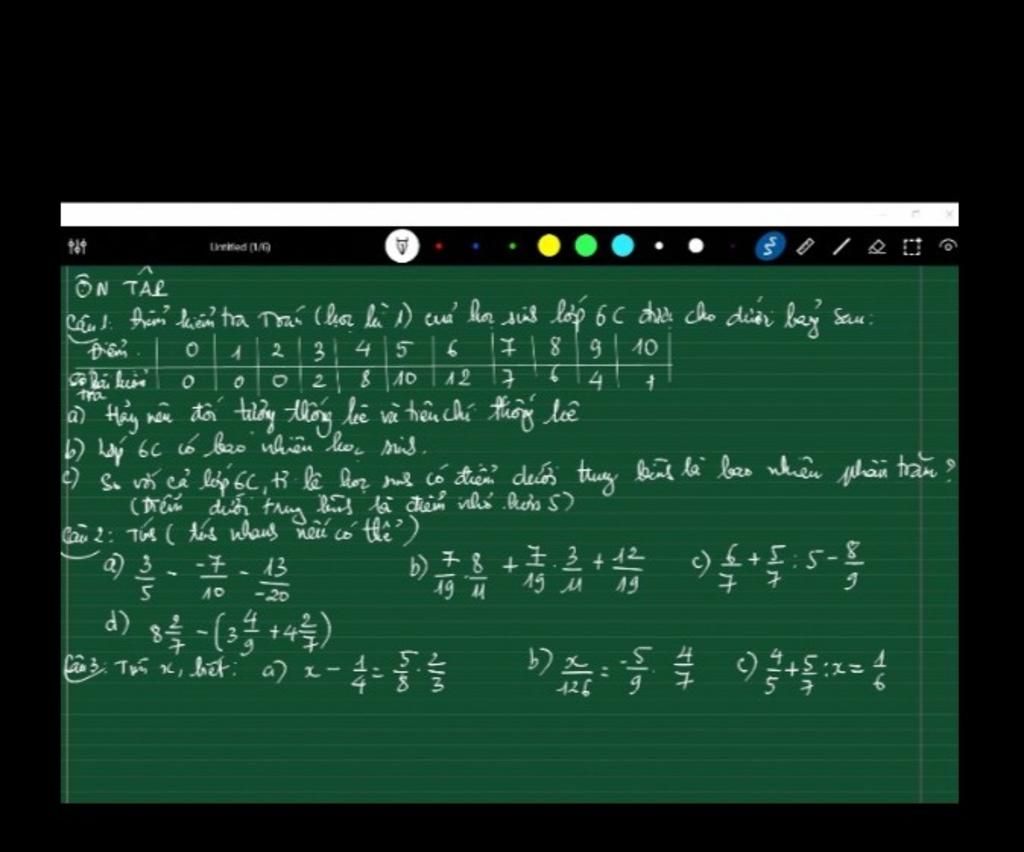 Untitled (1/6)
ÔN TẬP
Câu 1: Điểm kiểm tra Toán (học kì 1) của học sinh lớp 6C được cho dưới bảng sau:
Điểm | 0 | 1 | 2 | 3 | 4 | 5 | 6 | 7 | 8 | 9 | 10
Số bài kiểm tra | 0 | 0 | 0 | 2 | 8 | 10 | 12 | 7 | 6 | 4 | 1
a) Hãy nêu đối tượng thống kê và tiêu chí thống kê
b) Lớp 6C có bao nhiêu học sinh.
c) So với cả lớp 6C, tỉ lệ học sinh có điểm dưới trung bình là bao nhiêu phần trăm?
(Điểm dưới trung bình là điểm nhỏ hơn 5)
Câu 2: Tính (tính nhanh nếu có thể)
a) 3/5 - -7/10 - 13/-20 b) 7/19 . 8/11 + 7/19 . 3/11 + 12/19 c) 6/7 + 5/7 : 5 - 8/9
d) 8 2/7 - (3 4/9 + 4 2/7)
Câu 3: Tìm x, biết: a) x - 1/4 = 5/8 . 2/3 b) x/126 = -5/9 . 4/7 c) 4/5 + 5/7 : x = 1/6